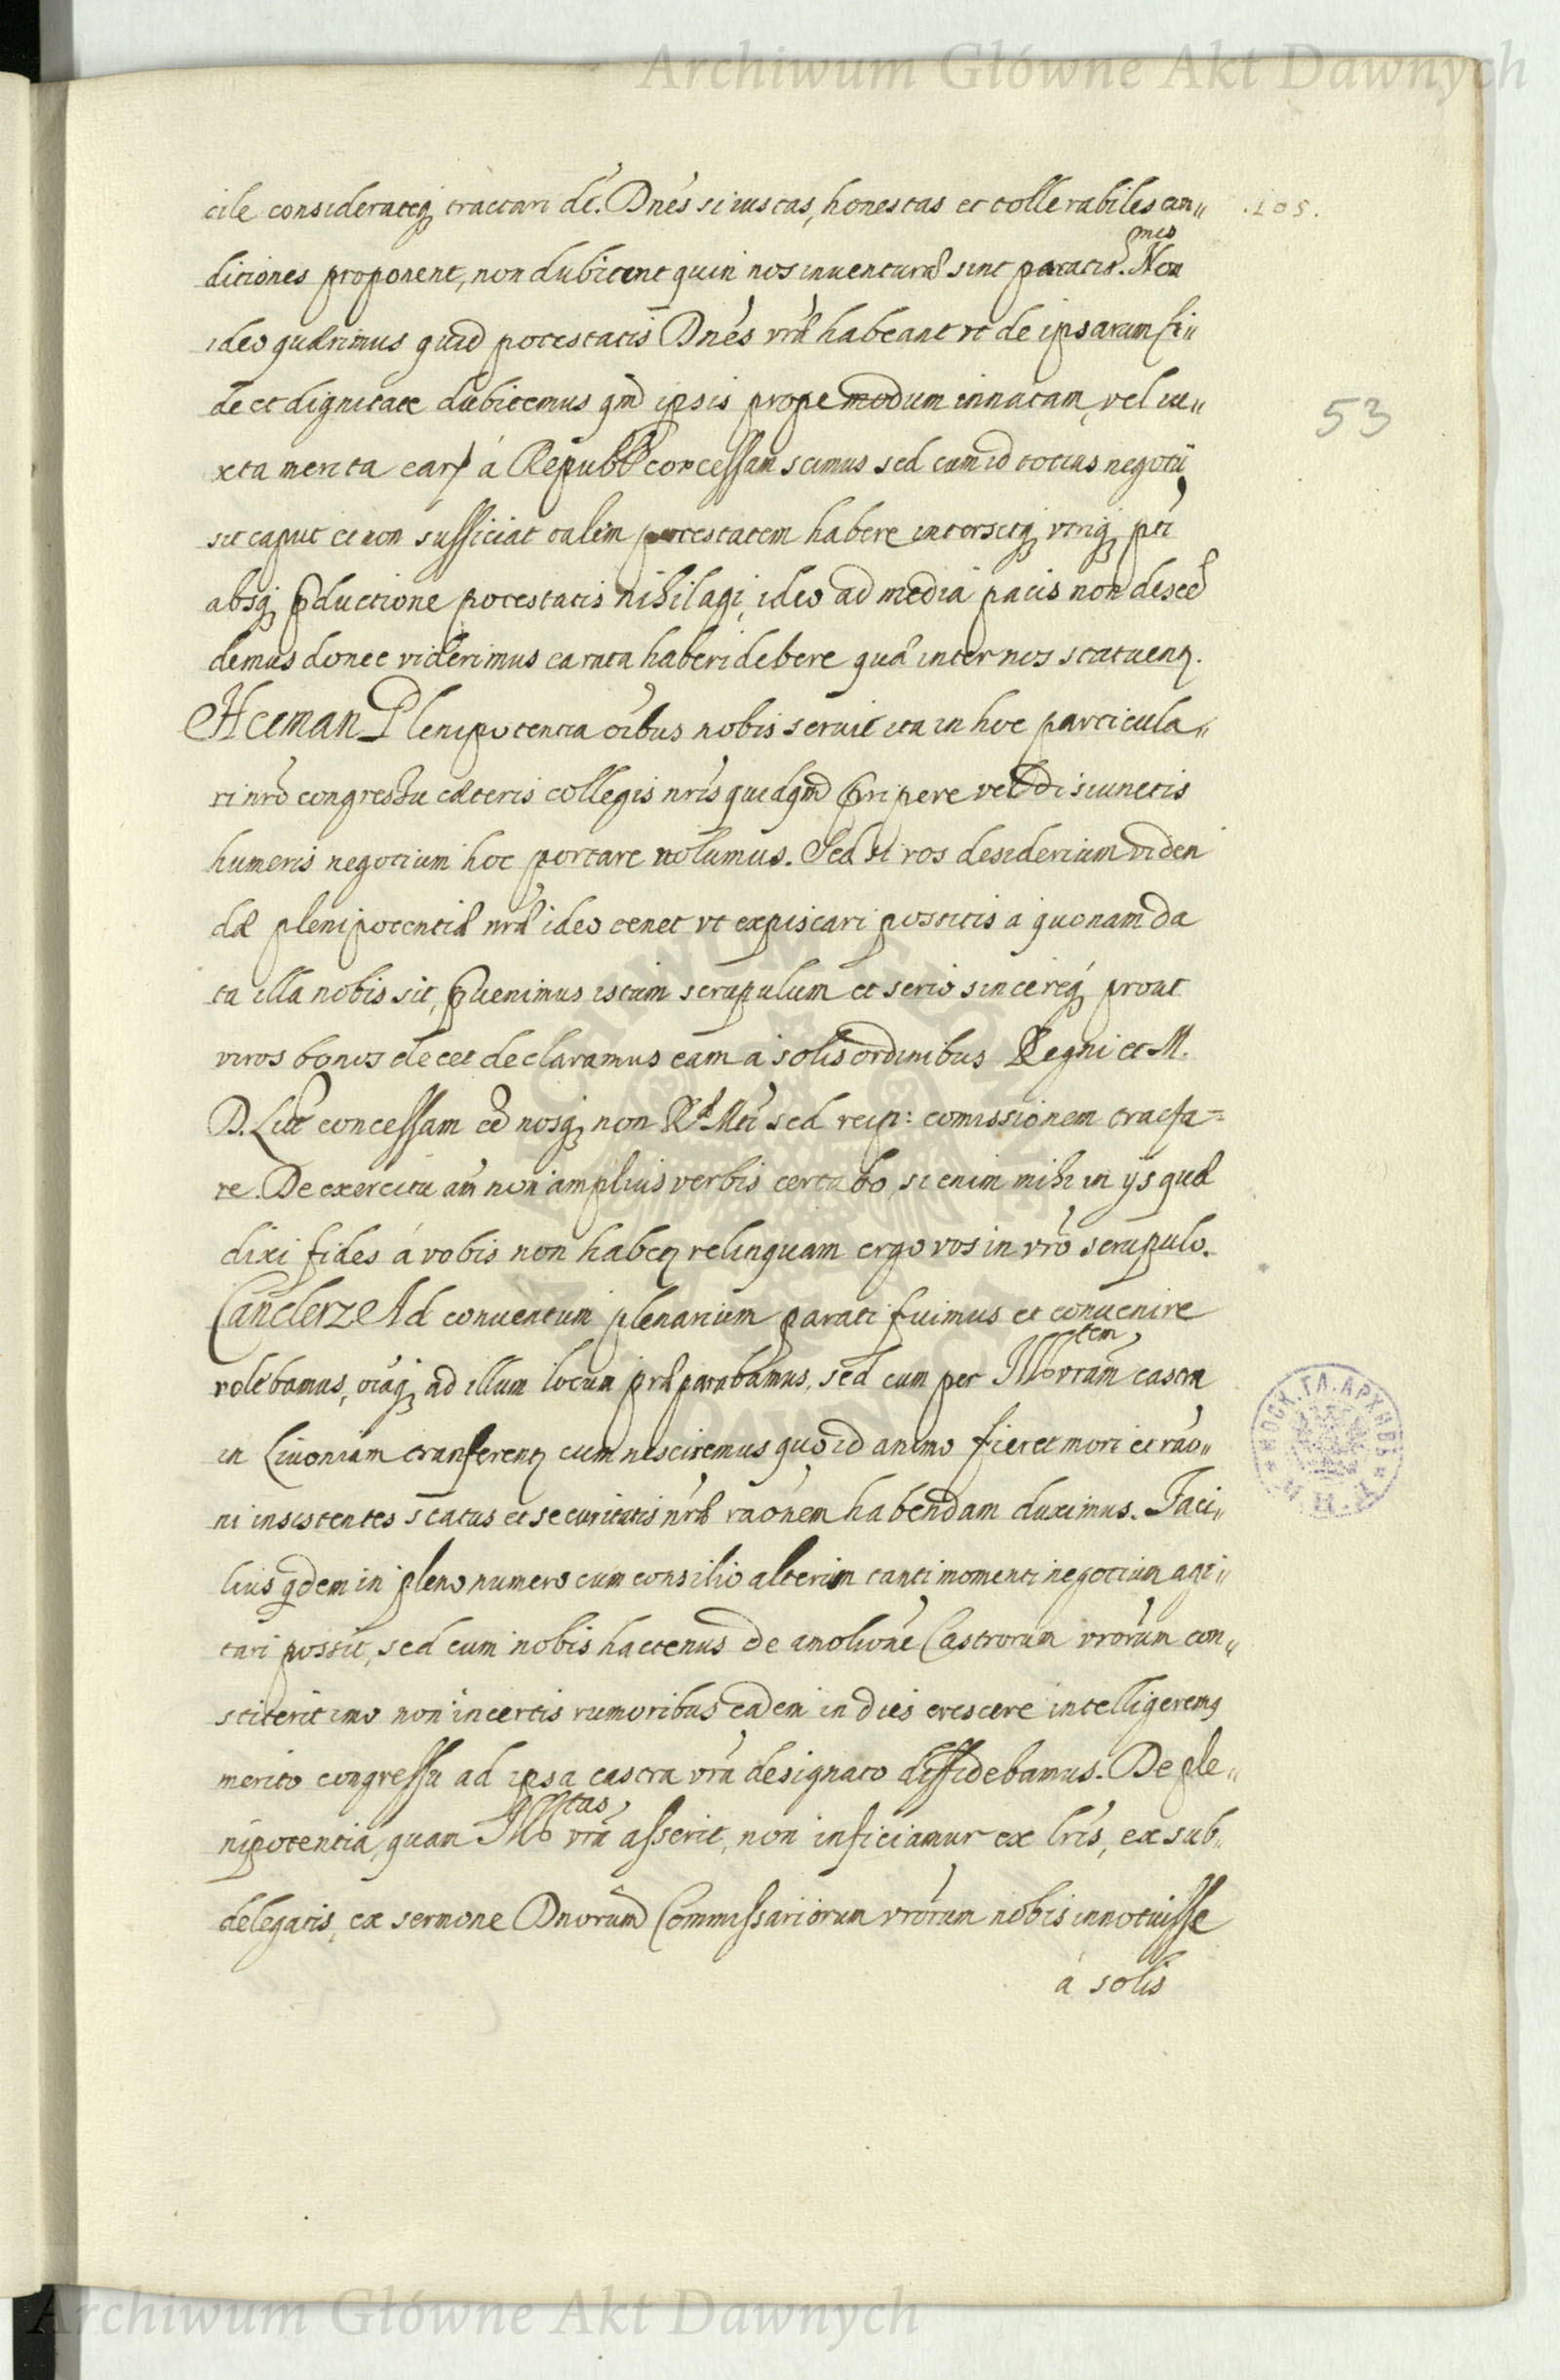 Archiwum Główne Akt Dawnych
cile considerateq́ tractari dẽ. Dnẽs si iustas, honestas et tollerabiles con„ .105.
ditiones proponent, non dubitent quin nos inventuræ sint paratissᵐᵒˢ. Non
ideo quærimus quid potestatis Dnẽs vræ habeant vt de ipsarum fi„
de et dignitate dubitemus qm̃ ipsis propemodum innatam, vel iu„ 53
xta merita earꝝ á Republ concessam scimus sed cum id totius negotij
sit caput et non sufficiat talem potestatem habere intersitq́ vtriq́ pti
absq́ ꝓductione potestatis nihil agi, ideo ad media pacis non descẽ
demus donec viderimus ea rata haberi debere quæ inter nos statuenꝫ.
Hetman Plenipotentia oĩbus nobis servit ita in hoc particula„
ri nrõ congressu cæteris collegis nrĩs quidqm̃ præripere vel disiunctis
humeris negotium hoc portare nolumus. Sed si vos desiderium viden
dæ plenipotentiæ nræ ideo tenet vt expiscari possitis a quonam da
ta illa nobis sit, prævenimus istum scrupulum et serio sinceréq́ prout
viros bonos decet declaramus eam á solis ordinibus Regni et M.
D. Litt concessam eẽ nosq́ non Ræ Mtis sed reip: comissionem tracta=
re. De exercitu aũt non amplius verbis certabo, si enim mihi in ijs quæ
dixi fides á vobis non habetꝫ relinquam ergo vos in vrõ scrupulo.
Canclerz Ad conventum plenarium parati fuimus et convenire
volebamus, oĩaq́ ad illum locum præparabamus, sed cum per Illᵗᵉᵐ vram castra
in Livoniam transferenꝫ cum nesciremus quo id animo fieret mori et raõ„
ni insistentes status et securitatis nræ raõnem habendam duximus. Faci„
lius qdem in pleno numero cum consilio alterum tanti momenti negotium agi„
tari possit, sed cum nobis hactenus de amotione Castrorum vrorum con„
stiterit imo non incertis rumoribus eadem in dies crescere intelligeremꝫ
merito congressu ad ipsa castra vra designato diffidebamus. De ple„
nipotentia, quam Illᵗᵃˢ vra asserit, non inficiamur ex lrĩs, ex sub„
delegatis, ex sermone Dnorum Commissariorum vrorum nobis innotuisse
á solis
МОСК. ГЛ. АРХИВЪ
Archiwum Główne Akt Dawnych